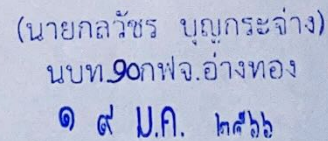 (นายกลวัชร บุญกระจ่าง)
นบท.๑๐กฟจ.อ่างทอง
๑ ๙ ม.ค. ๒๕๖๖